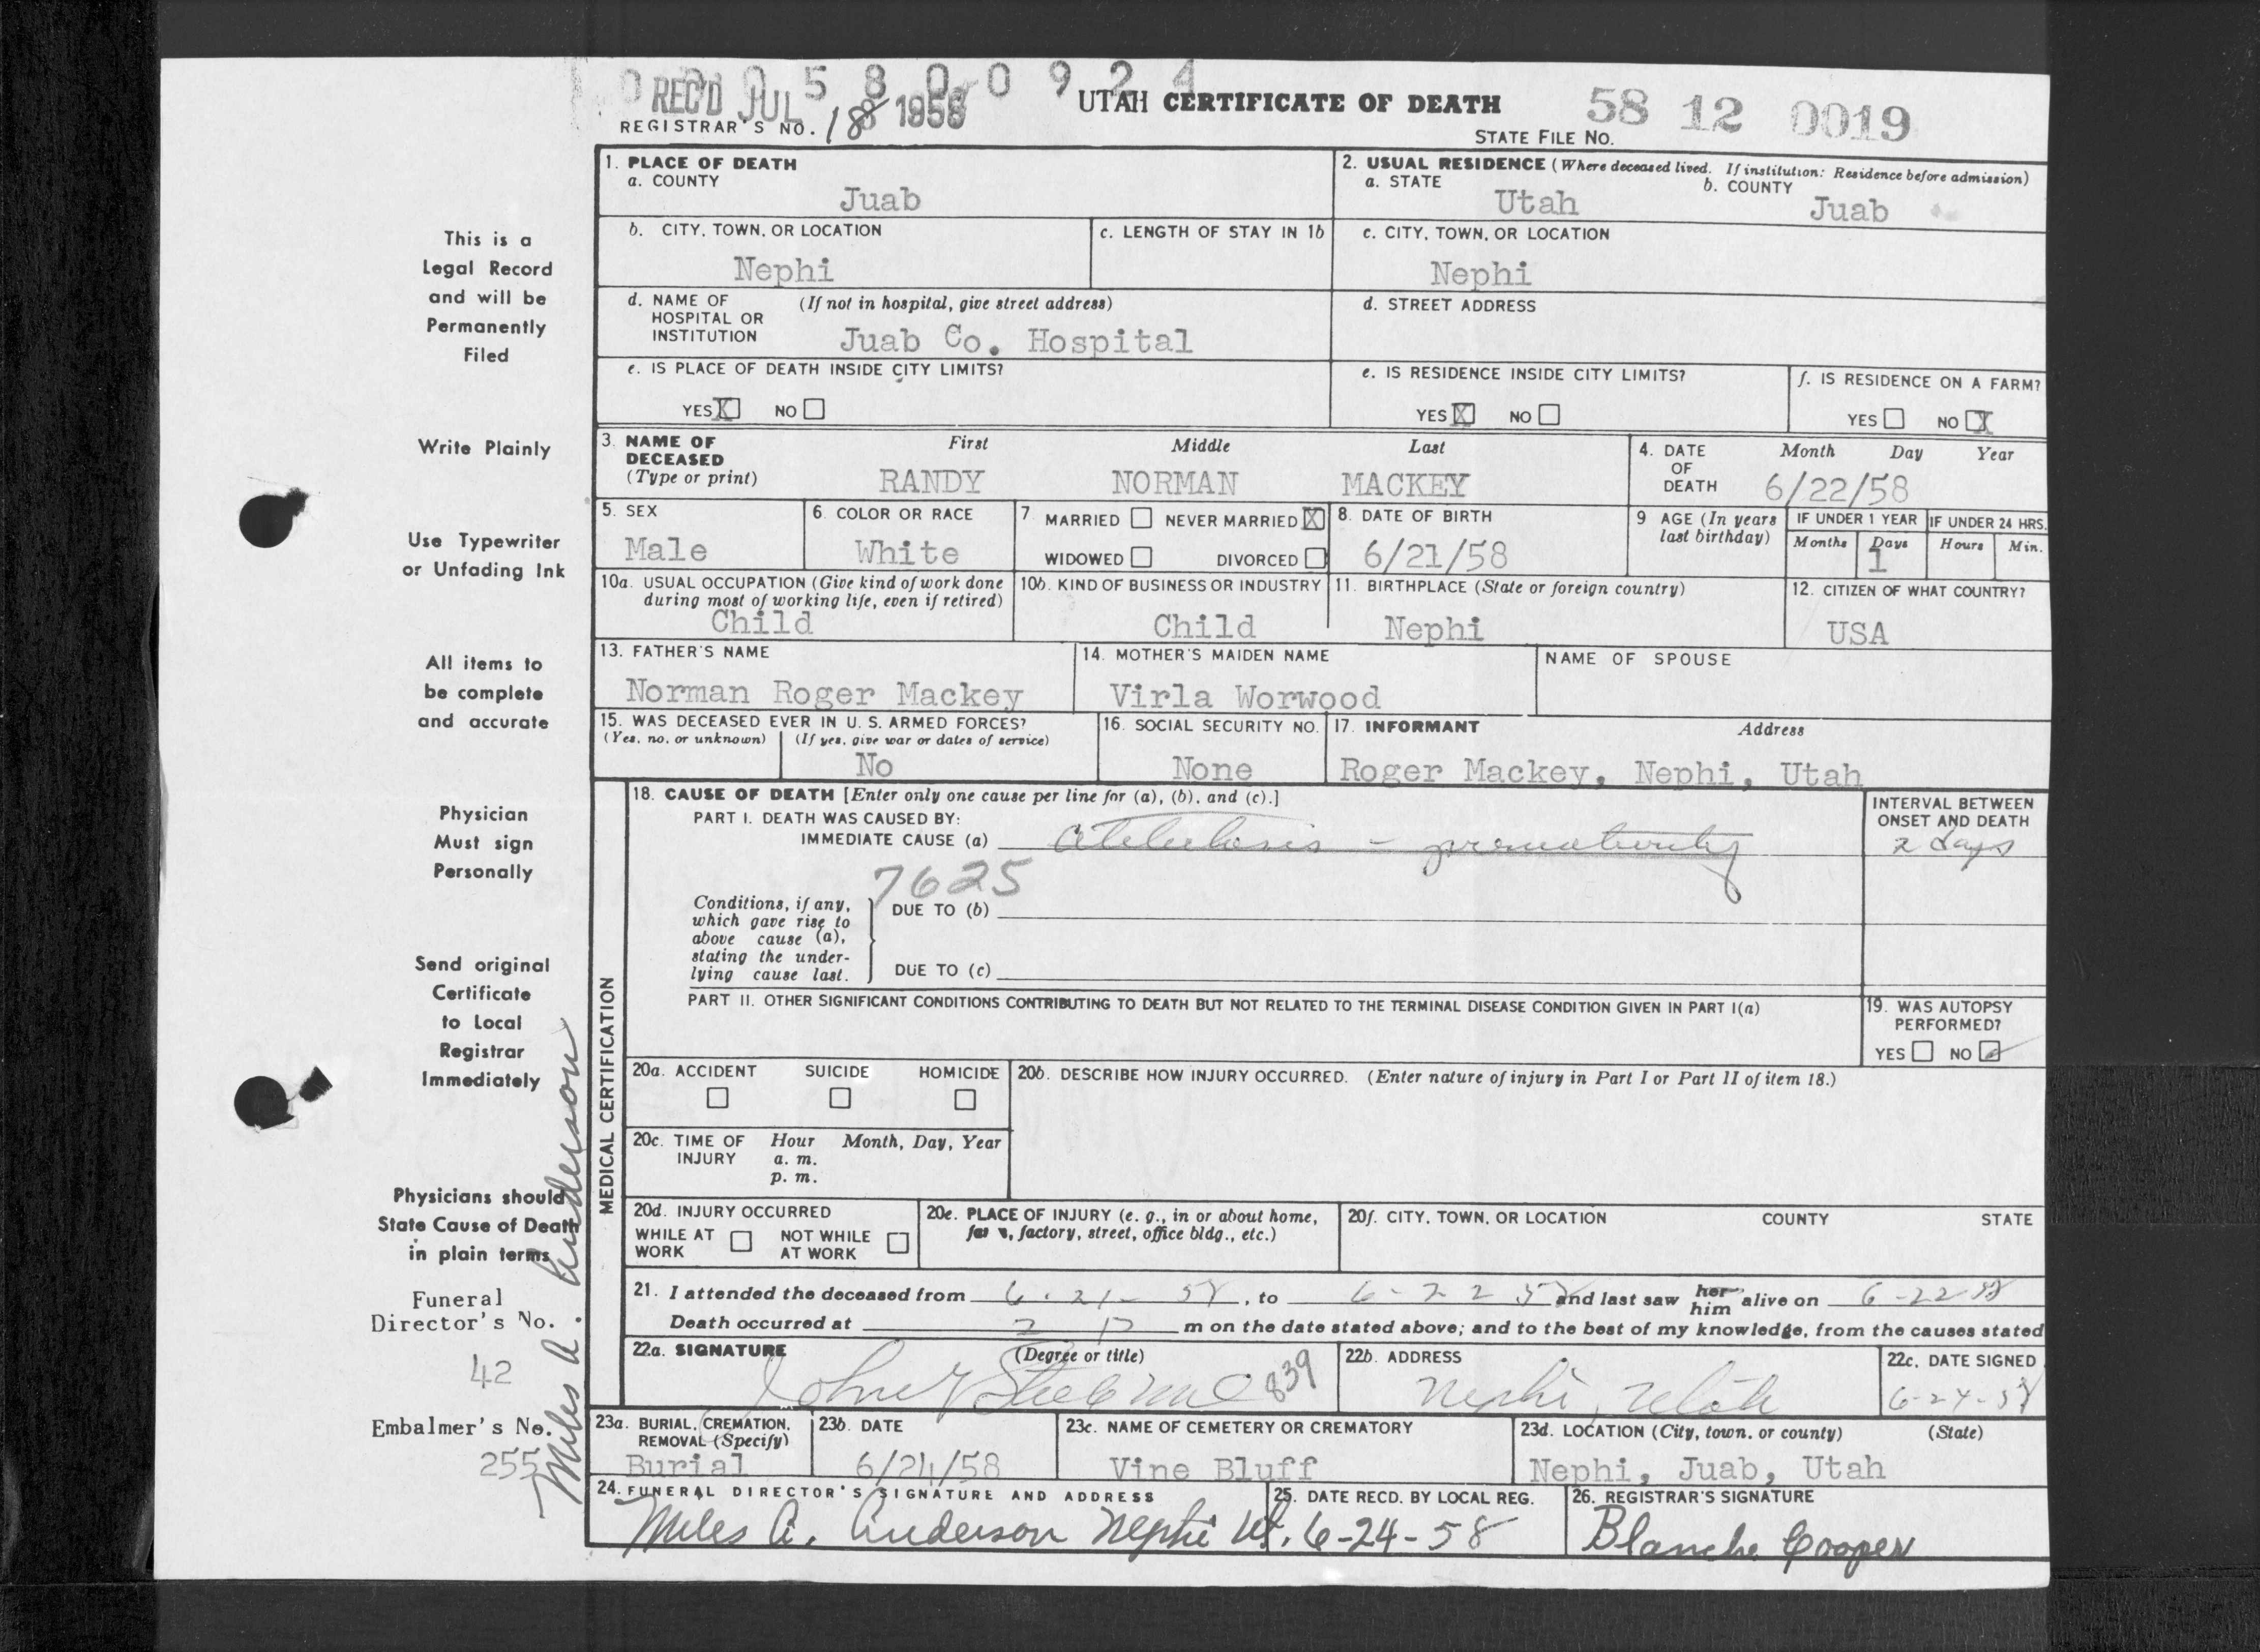 0 0 0 5 8 0 0 9 2 4
REC'D JUL 8 1958
REGISTRAR'S NO. 18
UTAH CERTIFICATE OF DEATH
58 12 0019
STATE FILE NO.
This is a
Legal Record
and will be
Permanently
Filed
Write Plainly
Use Typewriter
or Unfading Ink
All items to
be complete
and accurate
Physician
Must sign
Personally
Send original
Certificate
to Local
Registrar
Immediately
Physicians should
State Cause of Death
in plain terms
Funeral
Director's No.
42
Embalmer's No.
255
Miles A. Anderson
1. PLACE OF DEATH
a. COUNTY
Juab
2. USUAL RESIDENCE (Where deceased lived. If institution: Residence before admission)
a. STATE b. COUNTY
Utah Juab
b. CITY, TOWN, OR LOCATION
Nephi
c. LENGTH OF STAY IN 1b
c. CITY, TOWN, OR LOCATION
Nephi
d. NAME OF (If not in hospital, give street address)
HOSPITAL OR
INSTITUTION Juab Co. Hospital
d. STREET ADDRESS
e. IS PLACE OF DEATH INSIDE CITY LIMITS?
YES X NO
e. IS RESIDENCE INSIDE CITY LIMITS?
YES X NO
f. IS RESIDENCE ON A FARM?
YES NO X
3. NAME OF DECEASED (Type or print)
First Middle Last
RANDY NORMAN MACKEY
4. DATE OF DEATH
Month Day Year
6/22/58
5. SEX
Male
6. COLOR OR RACE
White
7 MARRIED NEVER MARRIED X
WIDOWED DIVORCED
8. DATE OF BIRTH
6/21/58
9 AGE (In years last birthday)
IF UNDER 1 YEAR
Months Days
1
IF UNDER 24 HRS.
Hours Min.
10a. USUAL OCCUPATION (Give kind of work done
during most of working life, even if retired)
Child
10b. KIND OF BUSINESS OR INDUSTRY
Child
11. BIRTHPLACE (State or foreign country)
Nephi
12. CITIZEN OF WHAT COUNTRY?
USA
13. FATHER'S NAME
Norman Roger Mackey
14. MOTHER'S MAIDEN NAME
Virla Worwood
NAME OF SPOUSE
15. WAS DECEASED EVER IN U. S. ARMED FORCES?
(Yes, no, or unknown) (If yes, give war or dates of service)
No
16. SOCIAL SECURITY NO.
None
17. INFORMANT Address
Roger Mackey, Nephi, Utah
MEDICAL CERTIFICATION
18. CAUSE OF DEATH [Enter only one cause per line for (a), (b), and (c).]
PART I. DEATH WAS CAUSED BY:
IMMEDIATE CAUSE (a) atelectasis - prematurity
INTERVAL BETWEEN
ONSET AND DEATH
2 days
7625
Conditions, if any,
which gave rise to
above cause (a),
stating the under-
lying cause last.
DUE TO (b)
DUE TO (c)
PART II. OTHER SIGNIFICANT CONDITIONS CONTRIBUTING TO DEATH BUT NOT RELATED TO THE TERMINAL DISEASE CONDITION GIVEN IN PART I(a)
19. WAS AUTOPSY
PERFORMED?
YES NO
20a. ACCIDENT SUICIDE HOMICIDE
20b. DESCRIBE HOW INJURY OCCURRED. (Enter nature of injury in Part I or Part II of item 18.)
20c. TIME OF INJURY
Hour Month, Day, Year
a. m.
p. m.
20d. INJURY OCCURRED
WHILE AT WORK NOT WHILE AT WORK
20e. PLACE OF INJURY (e. g., in or about home,
farm, factory, street, office bldg., etc.)
20f. CITY, TOWN, OR LOCATION COUNTY STATE
21. I attended the deceased from 6-21-58, to 6-22 58 and last saw her him alive on 6-22-58
Death occurred at 2 P m on the date stated above; and to the best of my knowledge, from the causes stated
22a. SIGNATURE (Degree or title)
John Steele MD 839
22b. ADDRESS
Nephi, Utah
22c. DATE SIGNED
6-24-58
23a. BURIAL, CREMATION,
REMOVAL (Specify)
Burial
23b. DATE
6/24/58
23c. NAME OF CEMETERY OR CREMATORY
Vine Bluff
23d. LOCATION (City, town, or county) (State)
Nephi, Juab, Utah
24. FUNERAL DIRECTOR'S SIGNATURE AND ADDRESS
Miles A. Anderson Nephi Ut.
25. DATE RECD. BY LOCAL REG.
6-24-58
26. REGISTRAR'S SIGNATURE
Blanche Cooper